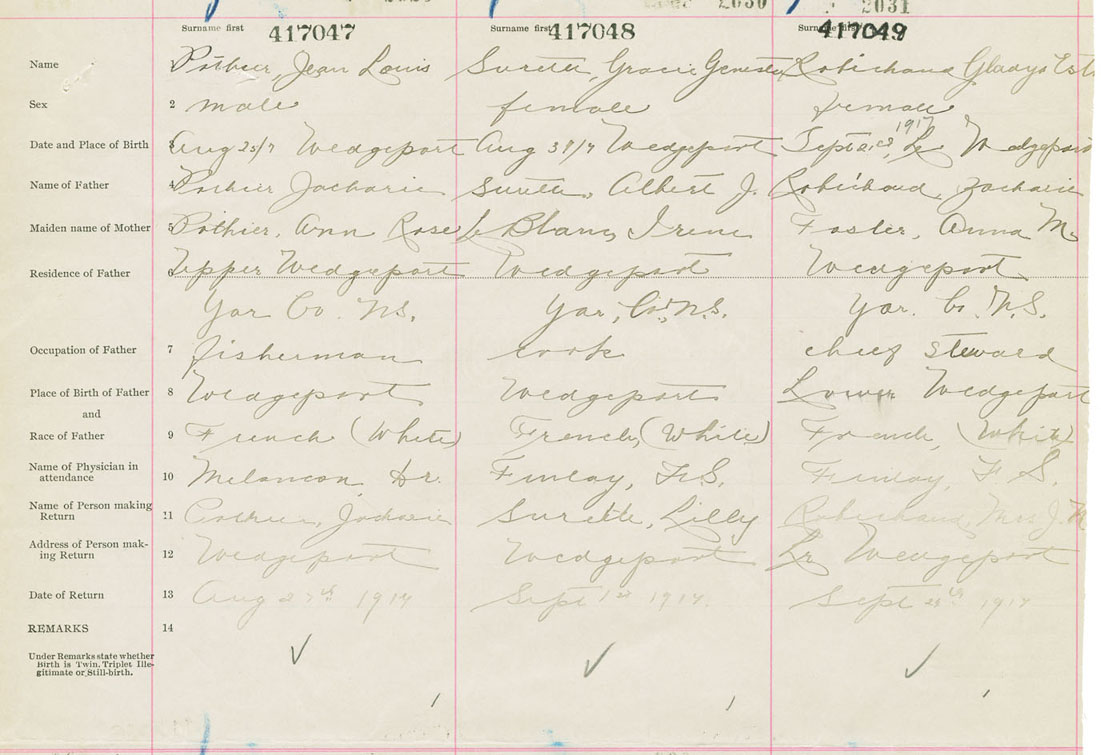 2030 2031
Surname first 417047 Surname first 417048 Surname first 417049
Name Pothier, Jean Louis Surette, Gracie Robichaud Gladys
Sex 2 male female female
Date and Place of Birth 3 Aug 25/17 Wedgeport Aug 31/17 Wedgeport Sept 1917 Lr Wedgeport
Name of Father 4 Pothier Zacharie Surette, Albert J. Robichaud, Zacharie
Maiden name of Mother 5 Pothier, Ann Rose Le Blanc, Irene Foster, Anna M.
Residence of Father 6 Upper Wedgeport Wedgeport Wedgeport
Yar Co. N.S. Yar, Co., N.S. Yar. Co. N.S.
Occupation of Father 7 fisherman cook chief steward
Place of Birth of Father 8 Wedgeport Wedgeport Lower Wedgeport
and
Race of Father 9 French (White) French, (White) French, (White)
Name of Physician in
attendance 10 Melancon, Dr. Finlay, F.S. Finlay, F.S.
Name of Person making
Return 11 Pothier, Zacharie Surette, Lilly Robichaud, Mrs J. M
Address of Person mak-
ing Return 12 Wedgeport Wedgeport Lr Wedgeport
Date of Return 13 Aug 27th 1917 Sept 1st 1917. Sept 1917
REMARKS 14
Under Remarks state whether
Birth is Twin. Triplet Ille-
gitimate or Still-birth.